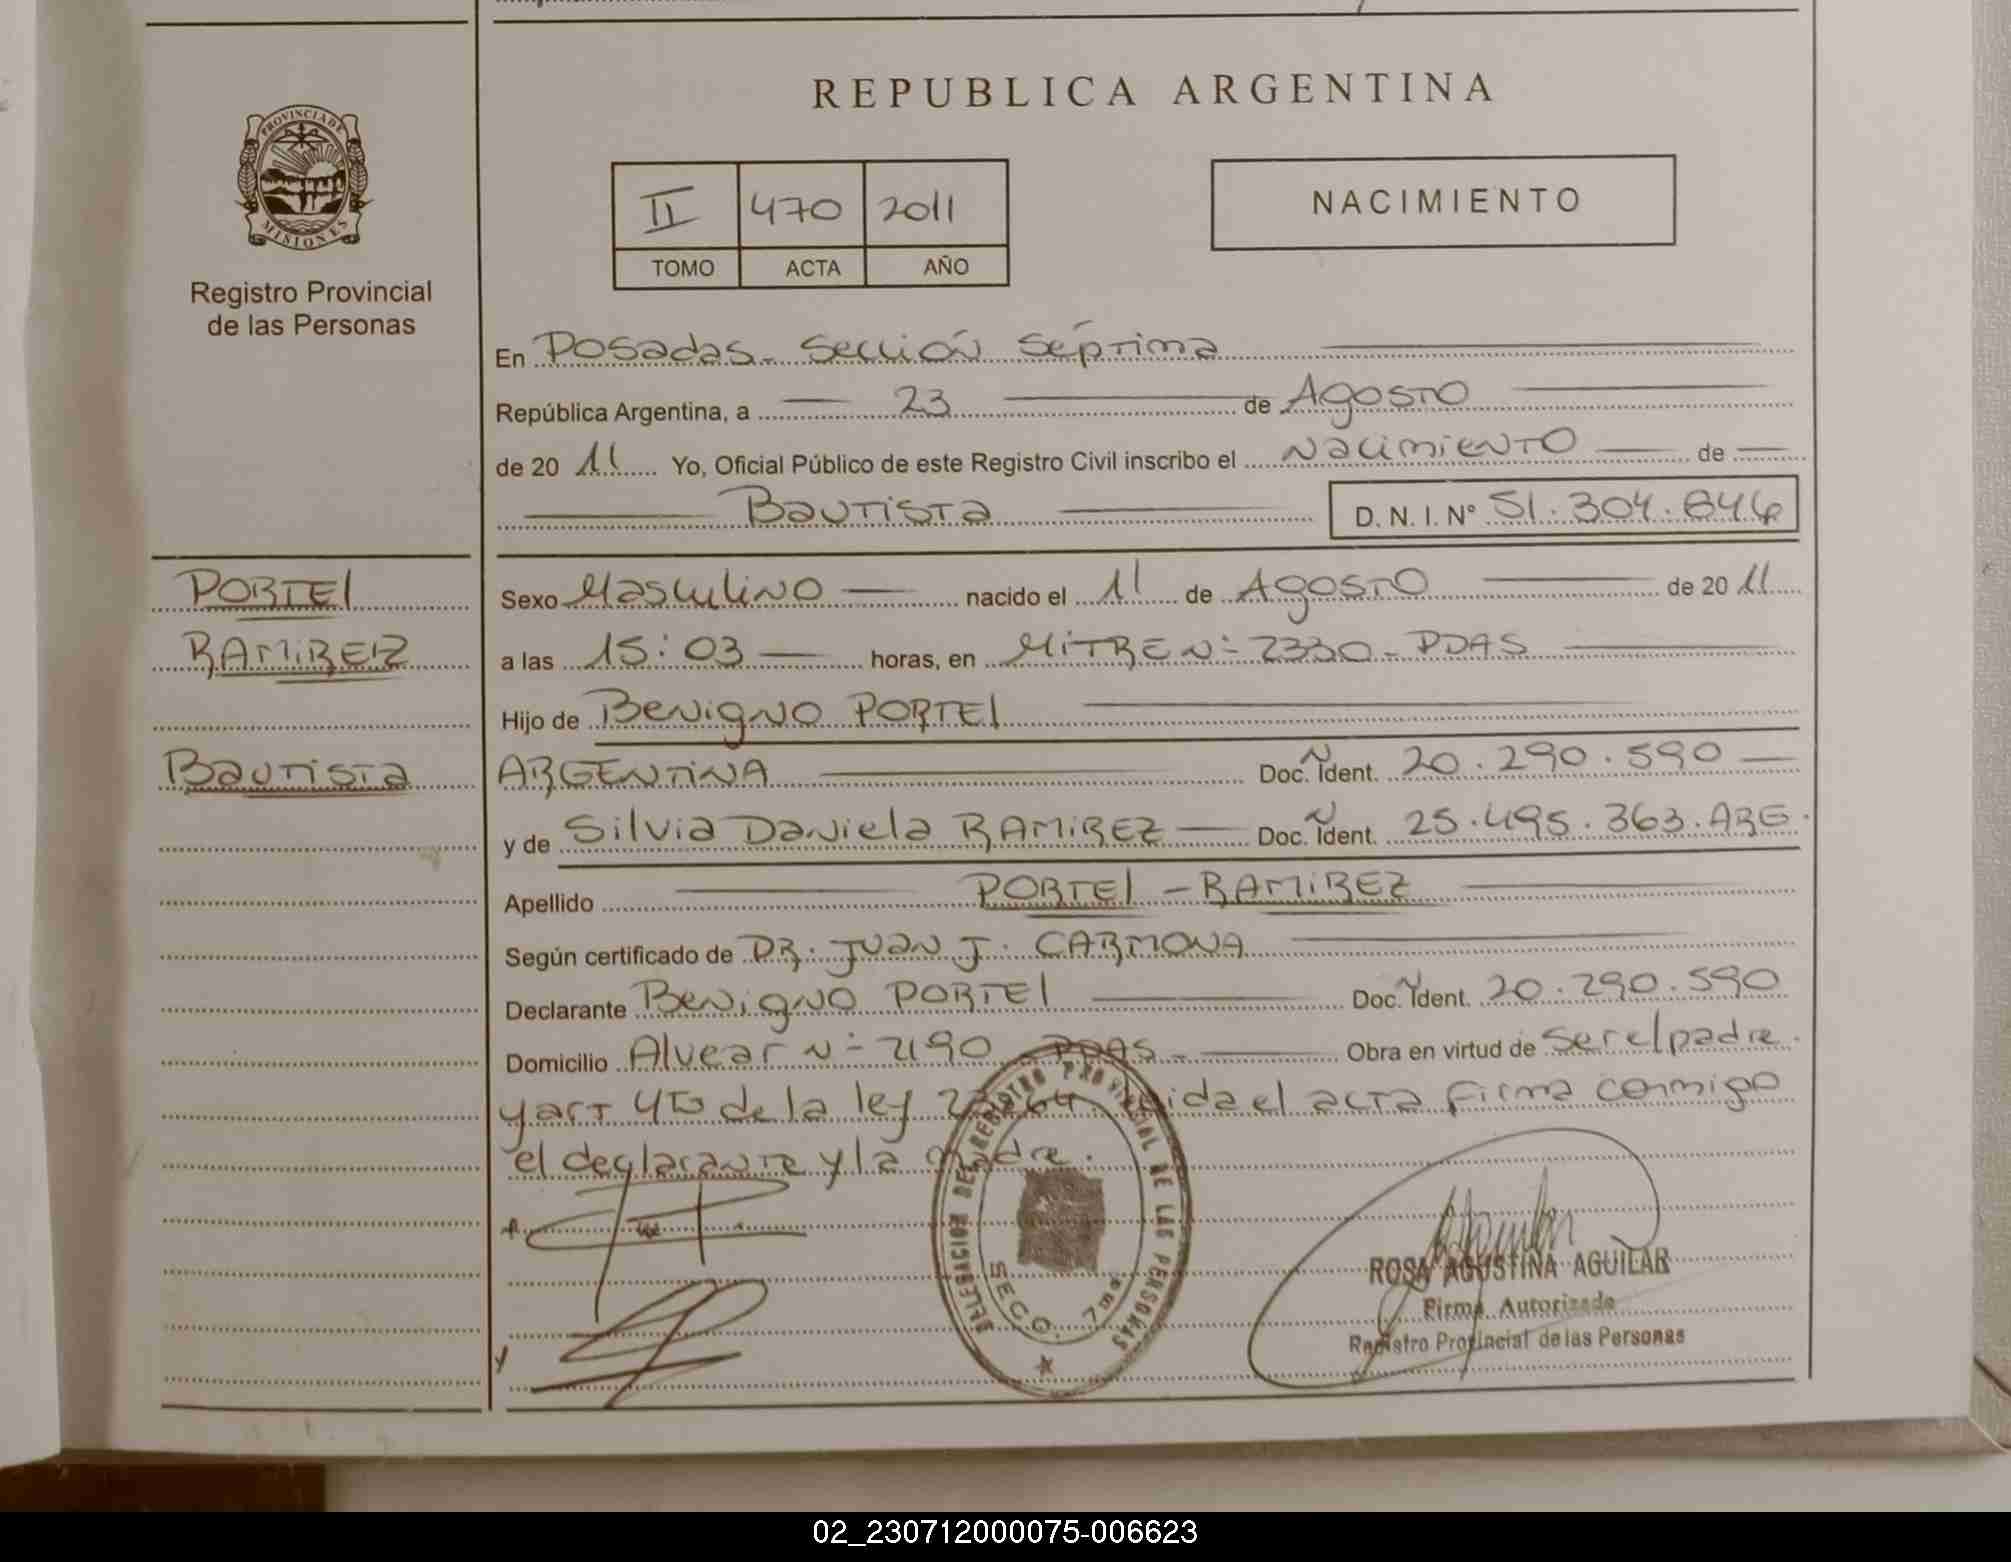 PROVINCIA DE
MISIONES
Registro Provincial
de las Personas
REPUBLICA ARGENTINA
II 470 2011
TOMO ACTA AÑO
NACIMIENTO
En Posadas. Sección Séptima
República Argentina, a 23 de Agosto
de 20 11 Yo, Oficial Público de este Registro Civil inscribo el Nacimiento de
Bautista D. N. I. Nº 51.304.846
PORTEl
RAMIREZ
Bautista
Sexo Masculino nacido el 11 de Agosto de 20 11
a las 15:03 horas, en MITRE Nº 2330 - PDAS
Hijo de Benigno PORTEl
ARGENTINA Doc. Ident. 20.290.590
y de Silvia Daniela RAMIREZ Doc. Ident. 25.495.363. ARG.
Apellido PORTEl - RAMIREZ
Según certificado de DR. JUAN J. CARMONA
Declarante Benigno PORTEl Doc. Ident. 20.290.590
Domicilio Alvear Nº 2190 PDAS - Obra en virtud de ser el padre
y art 4to de la ley leida el acta firma conmigo
el declarante y la madre.
DELEGACION DEL REGISTRO PROVINCIAL DE LAS PERSONAS
SECC. 7ma
ROSA AGUSTINA AGUILAR
Firma Autorizada
Registro Provincial de las Personas
y
02_230712000075-006623